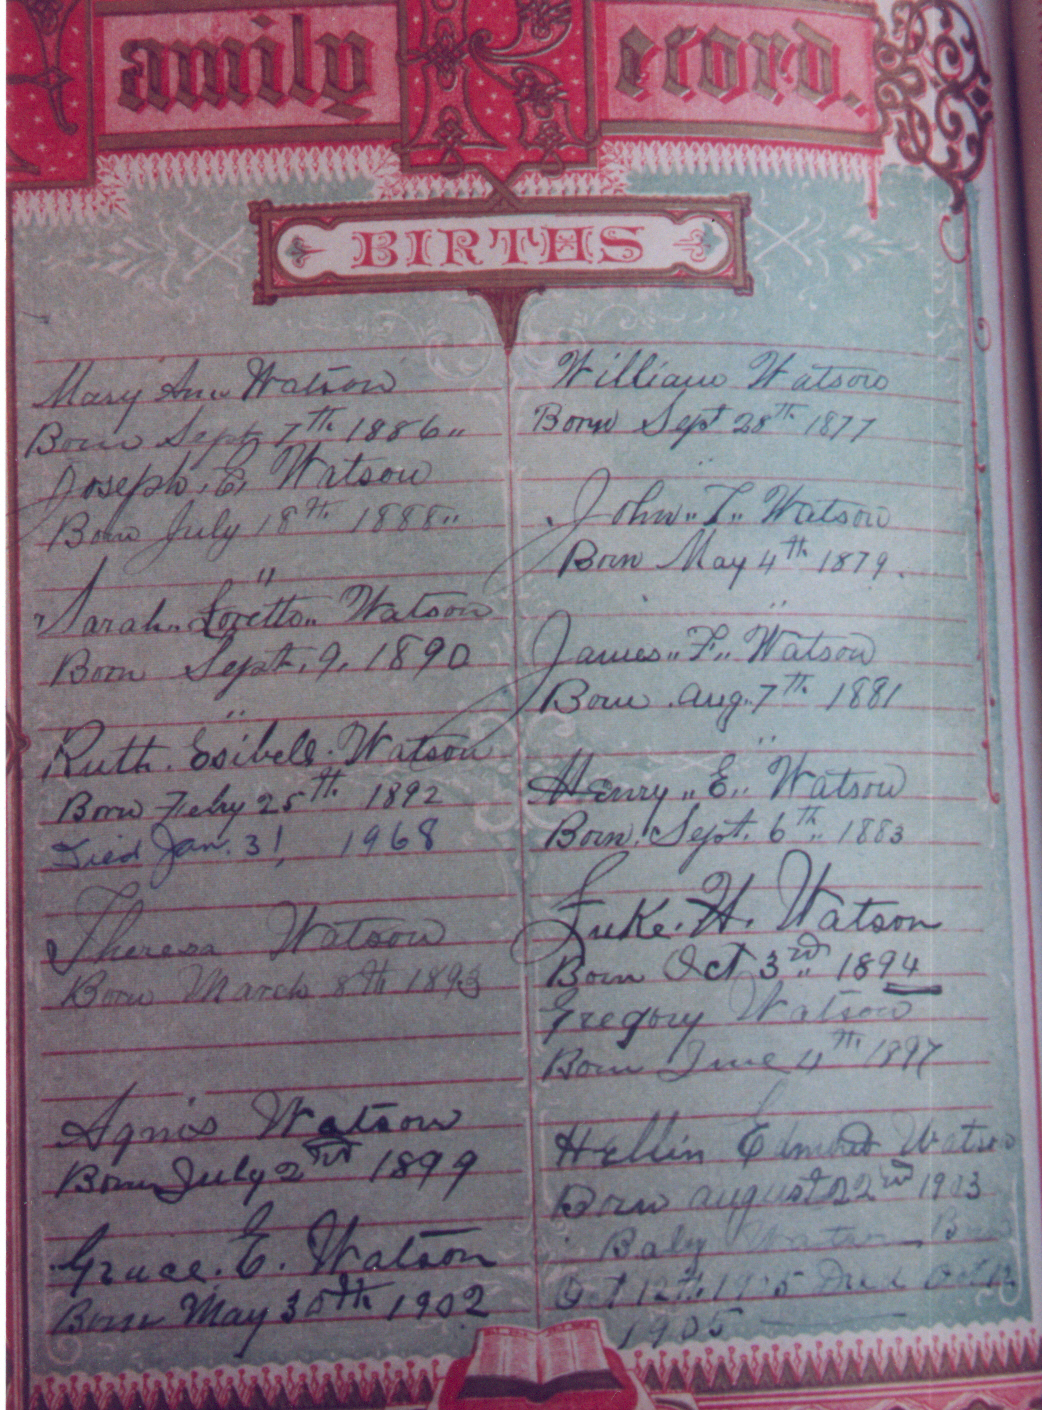 Family Record.
BIRTHS
Mary Ann Watson
Born Sept 7th 1886"
Joseph, E, Watson
Born July 18th 1888"
"
Sarah" Loretto" Watson
Born Sept. 9, 1890
"
Ruth. Esibell. Watson
Born Feby 25th 1892
Died Jan. 31, 1968
Theresa Watson
Born March 8th 1893
Agnis Watson
Born July 2nd 1899
Grace. E. Watson
Born May 30th 1902
William Watson
Born Sept 28th 1877
John" T" Watson
Born May 4th 1879.
"
James" F" Watson
Born aug. 7th 1881
"
Henry" E" Watson
Born. Sept. 6th" 1883
Luke. H. Watson
Born Oct 3rd" 1894
Gregory Watson
Born June 4th 1897
Hellin Edmord Watson
Born august 22nd 1903
Baby Watson Born
Oct 12th 1905 Died Oct 12
1905